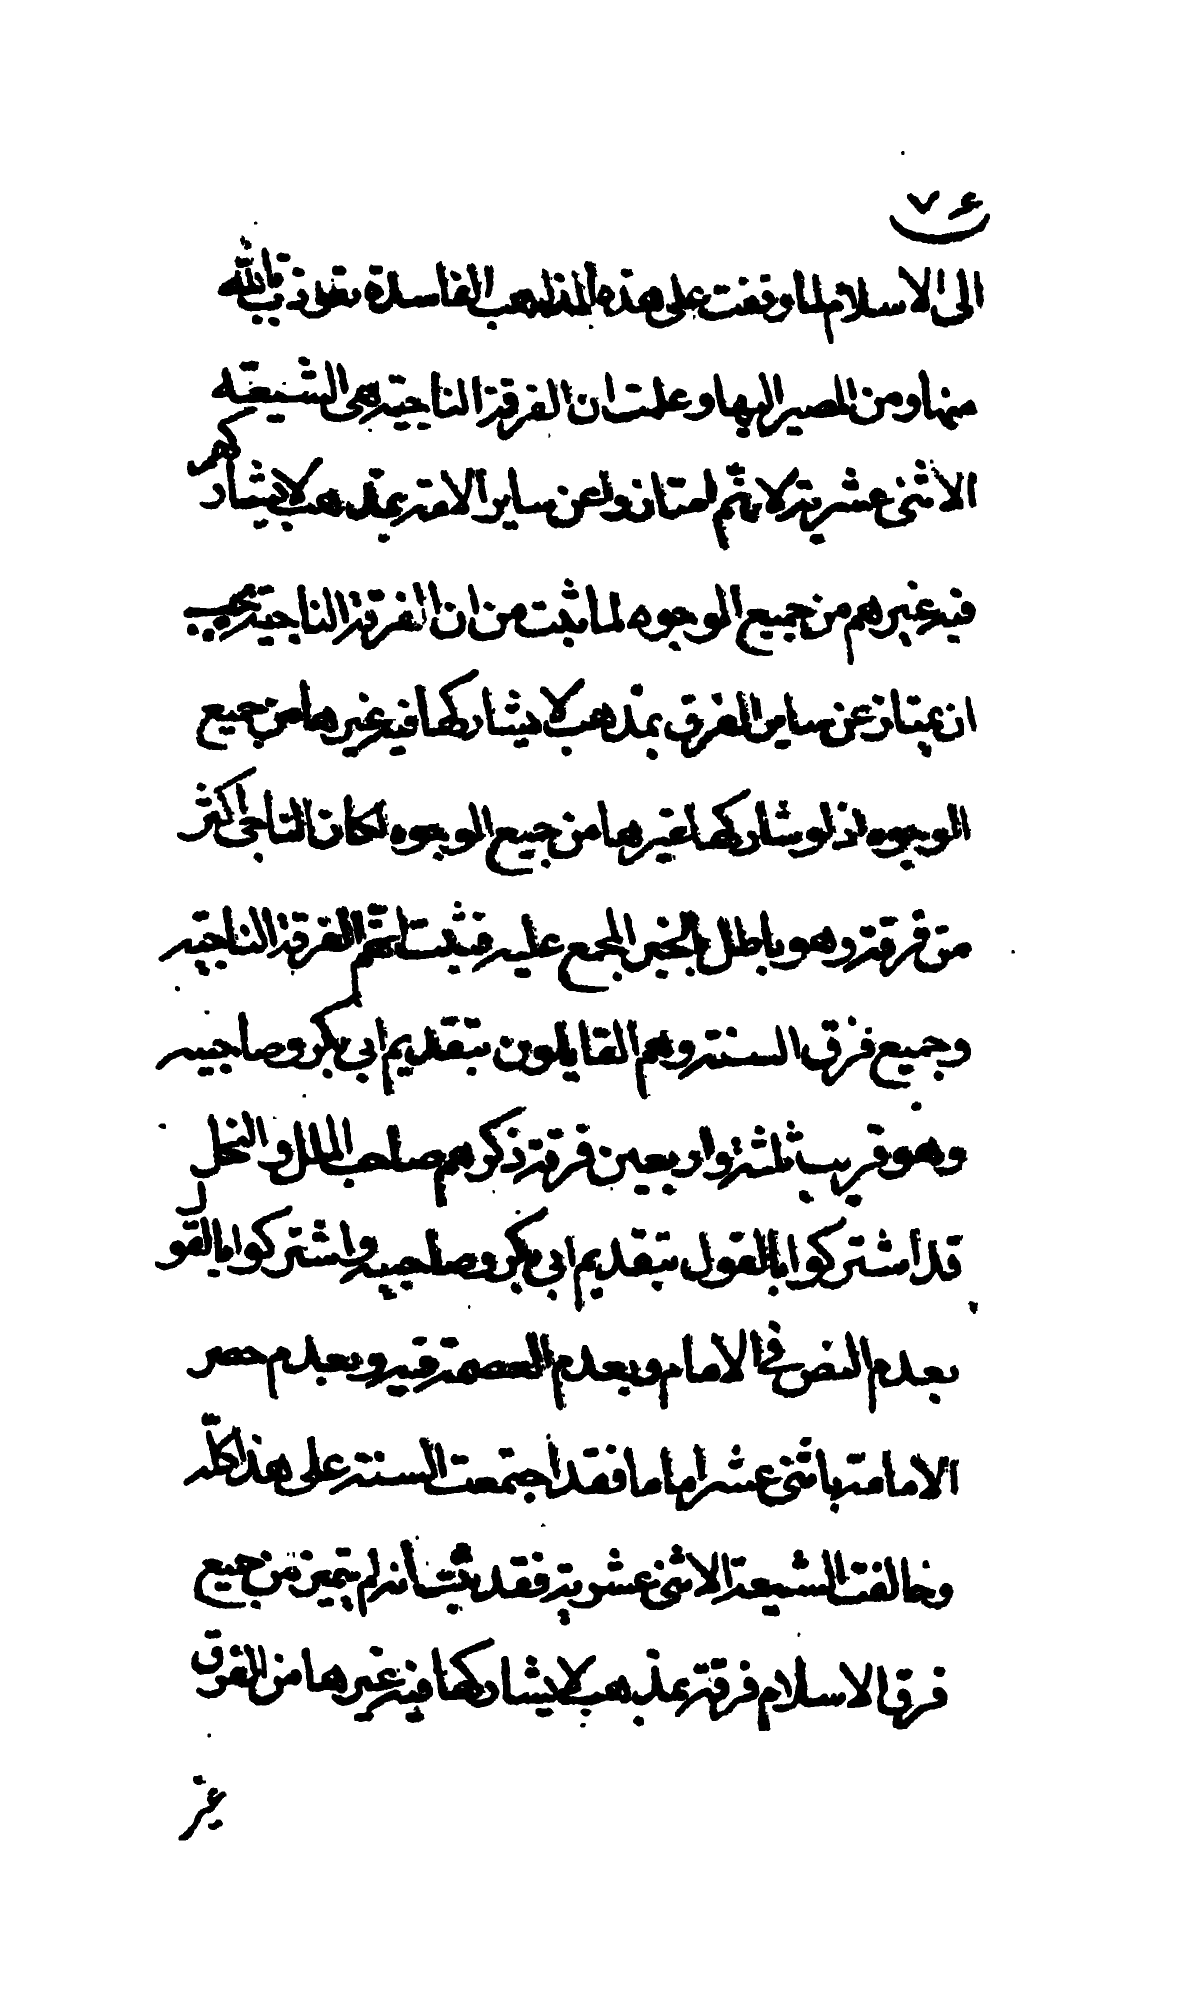 ٧٤
الى الاسلام لما وقفت على هذه المذاهب الفاسدة نعوذ بالله
منها ومن المصير اليها وعلمت ان الفرقة الناجية هى الشيعة
الاثنى عشرية لانهم امتازوا عن ساير الامة بمذهب لا يشاركهم
فيه غيرهم من جميع الوجوه لما ثبت من ان الفرقة الناجية يجب
ان يمتاز عن ساير الفرق بمذهب لا يشاركها فيه غيرها من جميع
الوجوه اذ لو شاركها غيرها من جميع الوجوه لكان الناجى اكثر
من فرقة وهو باطل بالخبر المجمع عليه فثبت انهم الفرقة الناجية
وجميع فرق السنة وهم القايلون بتقديم ابى بكر وصاحبيه
وهو قريب ثلثة واربعين فرقة ذكرهم صاحب الملل والنحل
قد اشتركوا بالقول بتقديم ابى بكر وصاحبيه واشتركوا بالقول
بعدم النص فى الامام وبعدم العصمة فيه وبعدم حصر
الامامة باثنى عشر اماما فقد اجتمعت السنة على هذا كله
وخالفت الشيعة الاثنى عشرية فقد ثبت انه لم يتميز من جميع
فرق الاسلام فرقة بمذهب لا يشاركها فيه غيرها من الفرق
غير